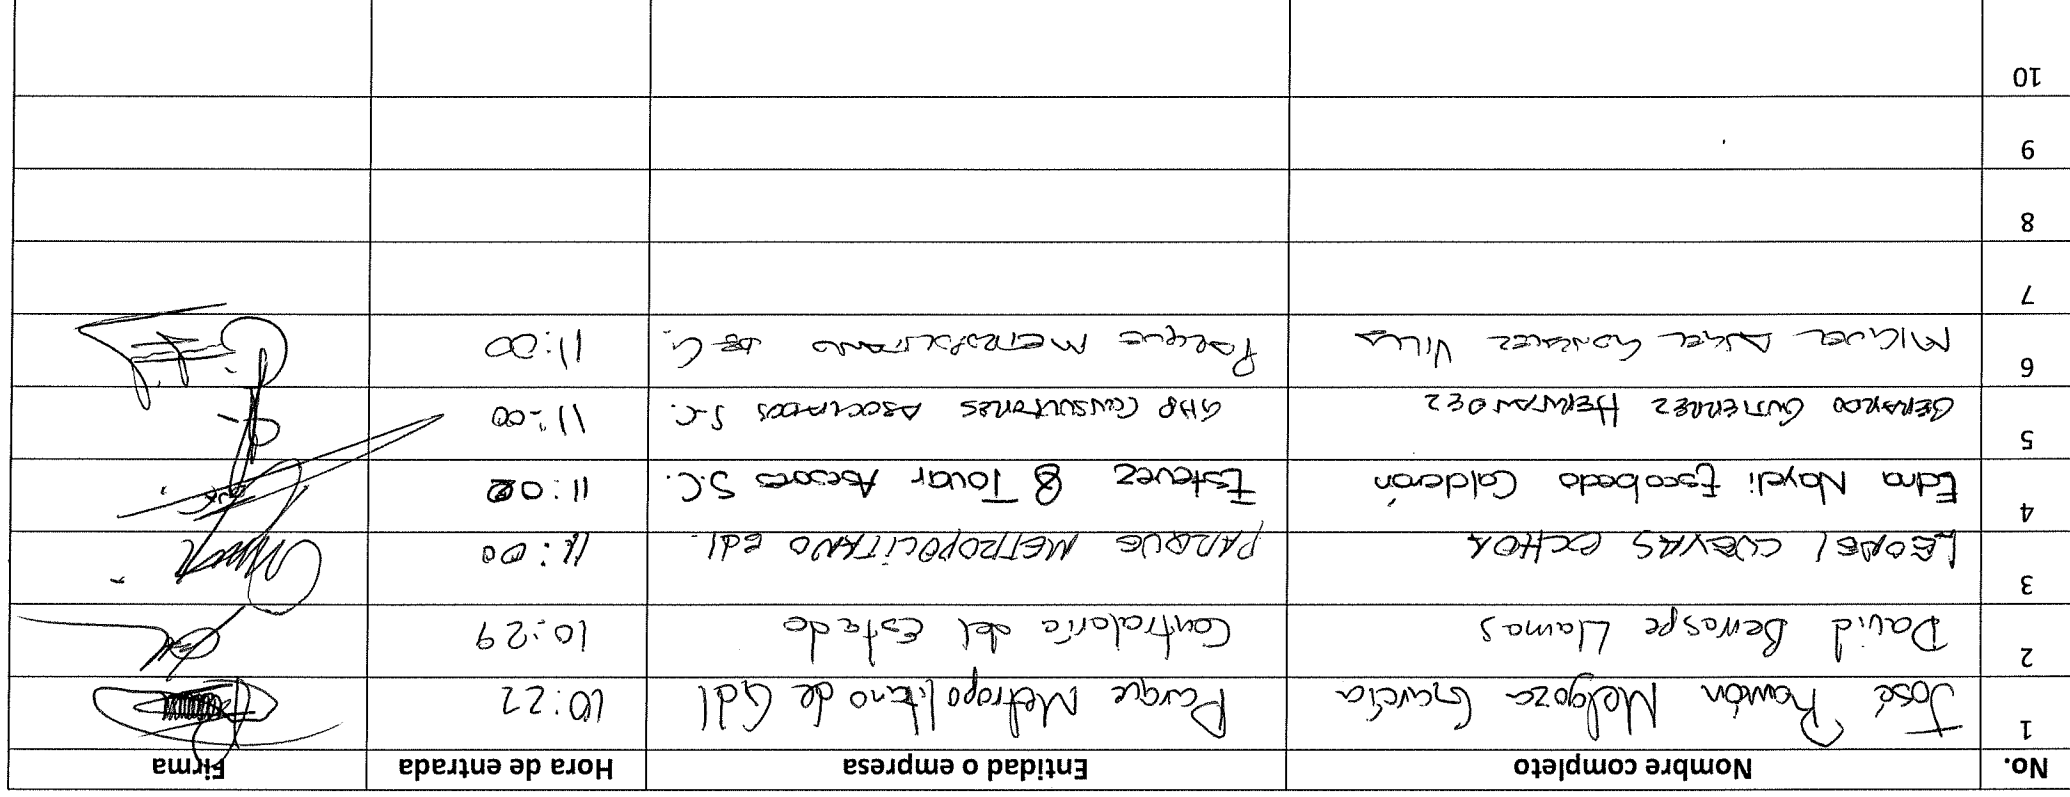 No. Nombre completo Entidad o empresa Hora de entrada Firma
1 José Ramón Melgoza García Parque Metropolitano de Gdl 10:22
2 David Berrospe Llamas Contraloría del Estado 10:29
3 LEONEL CUEVAS OCHOA PARQUE METROPOLITANO GDL. 11:00
4 Edna Nayeli Escobedo Calderón Estevez & Tovar Asesores S.C. 11:02
5 GERARDO GUTIERREZ HERNANDEZ GHP CONSULTORES ASOCIADOS S.C. 11:00
6 MIGUEL ANGEL GONZALEZ VILLA PARQUE METROPOLITANO DE G. 11:00
7
8
9
10